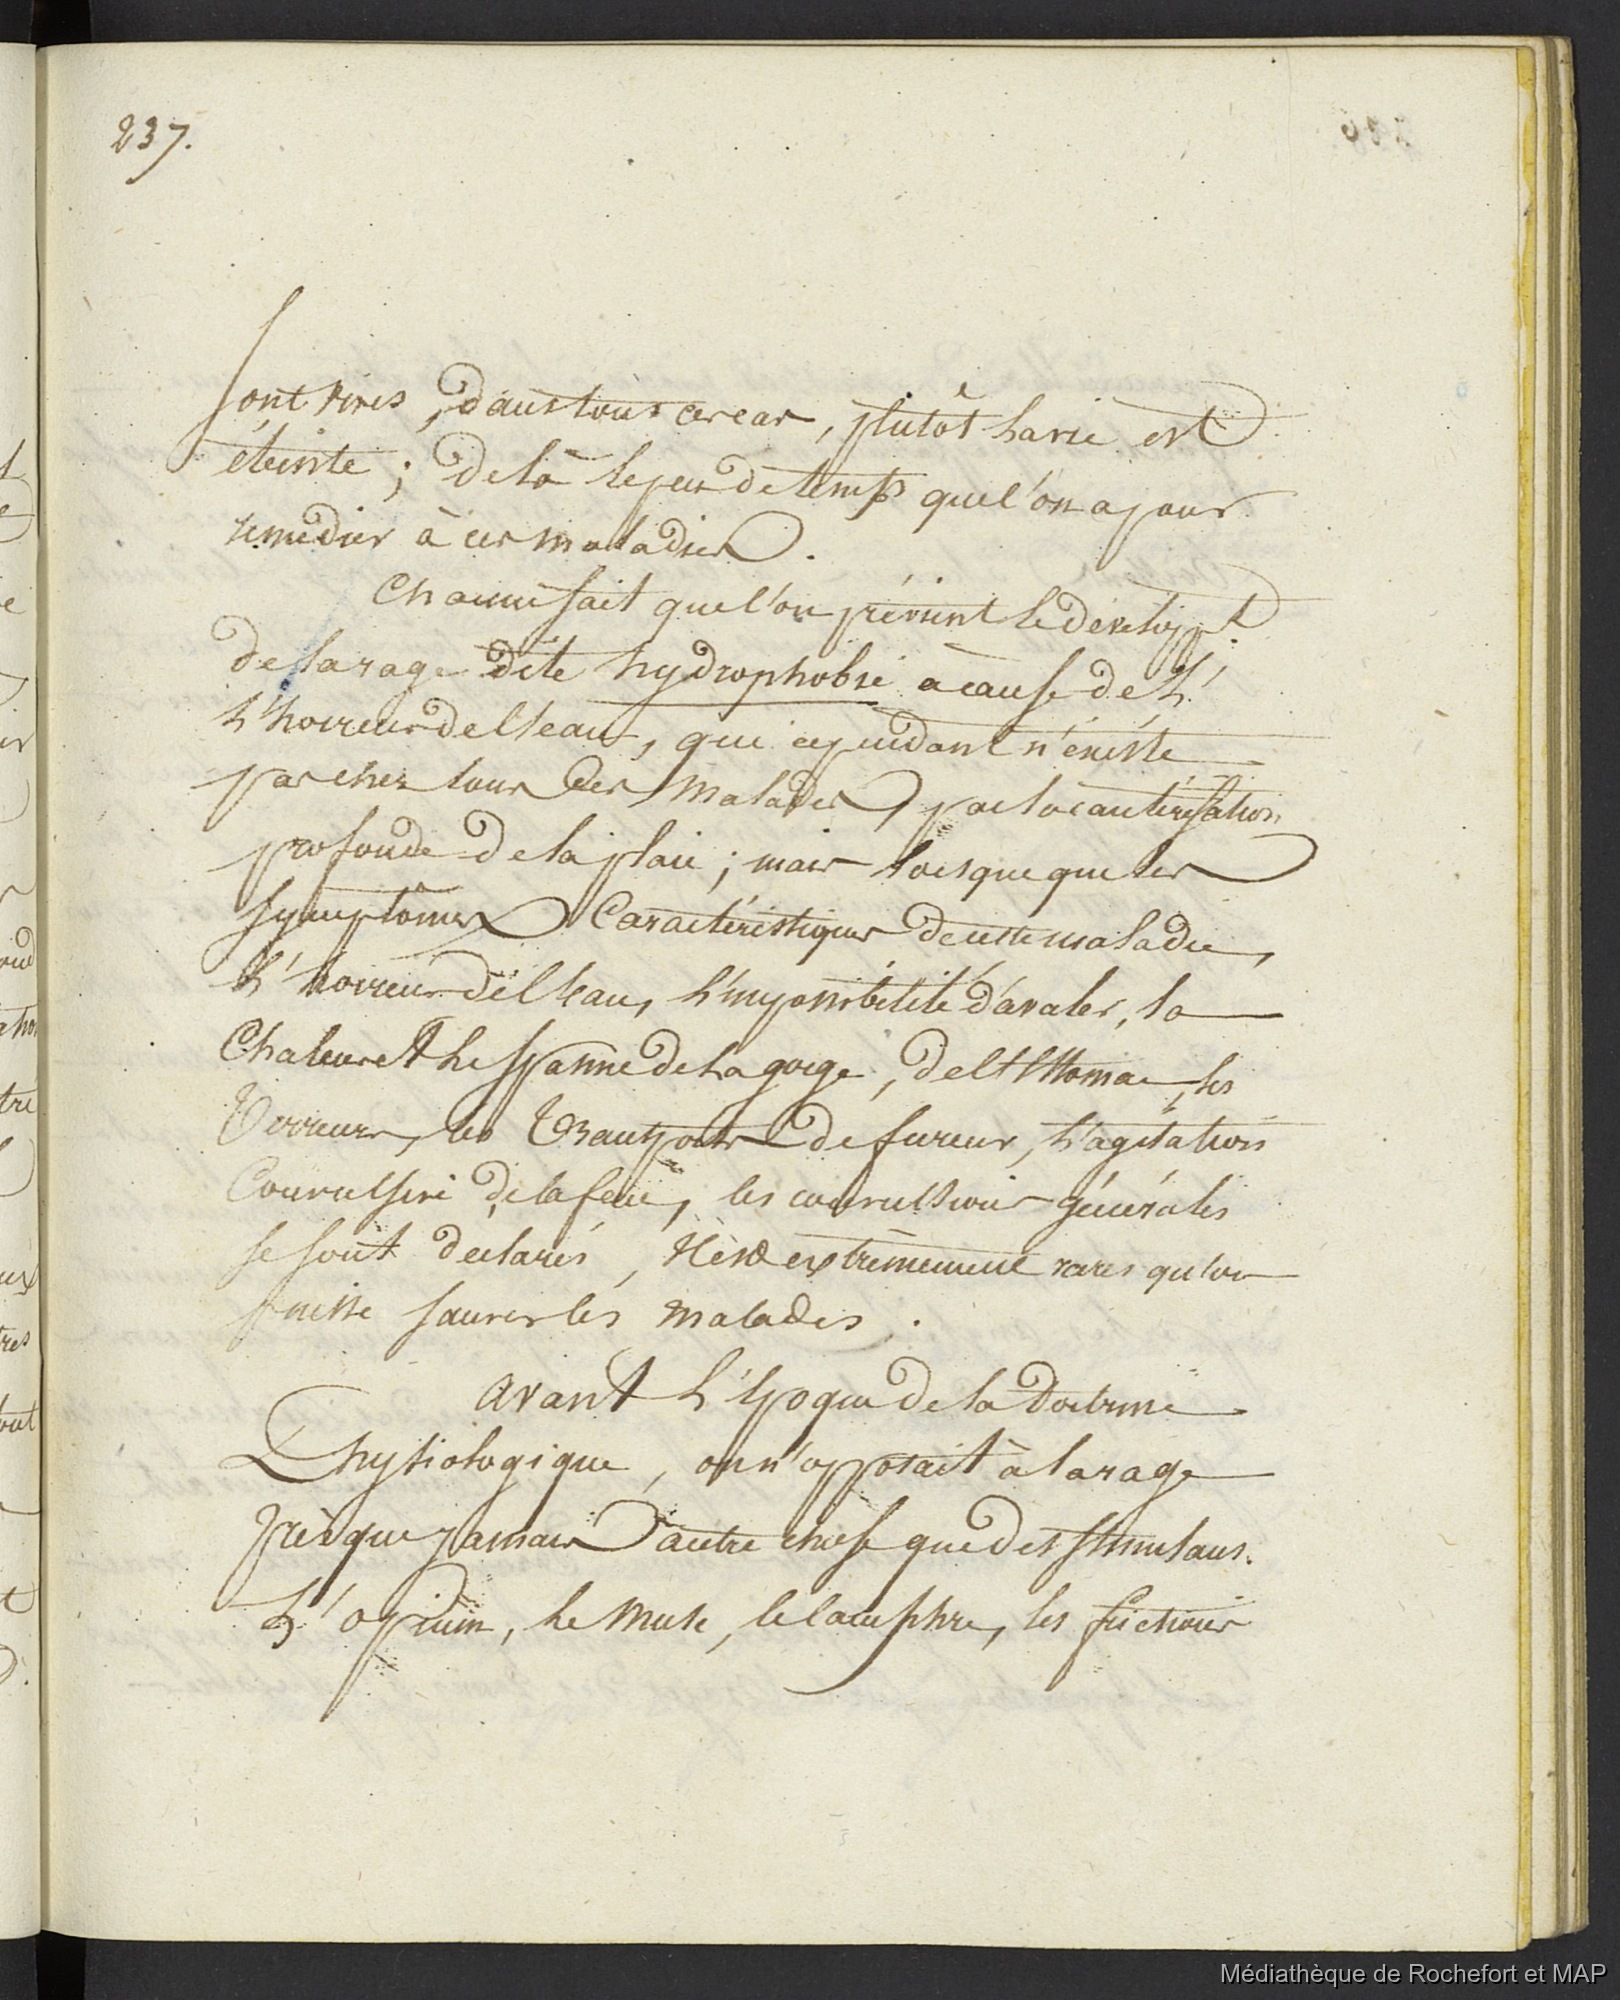 237.
sont vives, dans tous ces cas, plutôt la vie est
éteinte ; de là le peu de temps que l'on a pour
remedier à ces maladies.
Chacun sait que l'on prévient le develop.t
de la rage dite hydrophobie a cause de l'
l'horreur de l'eau, qui cependant n'éxiste
pas chez tous les malades, par la cautérisation
profonde de la plaie ; mais lorsque que les
symptômes Caractéristiques de cette maladie,
l'horreur de l'eau, l'impossibilité d'avaler, la
Chaleur et le spasme de la gorge, de l'Estomac, les
Terreurs, les Transports de fureur, l'agitation
Convulsive de la face, les convulsions générales
se sont declarés, il est extrêmement rares qu'on
puisse sauver les malades.
avant l'Epoque de la Doctrine
Physiologique, on n'opposait à la rage
prèsque jamais d'autre chose que des stimulans.
L'opium, le Musc, le Camphre, les frictions
Médiathèque de Rochefort et MAP